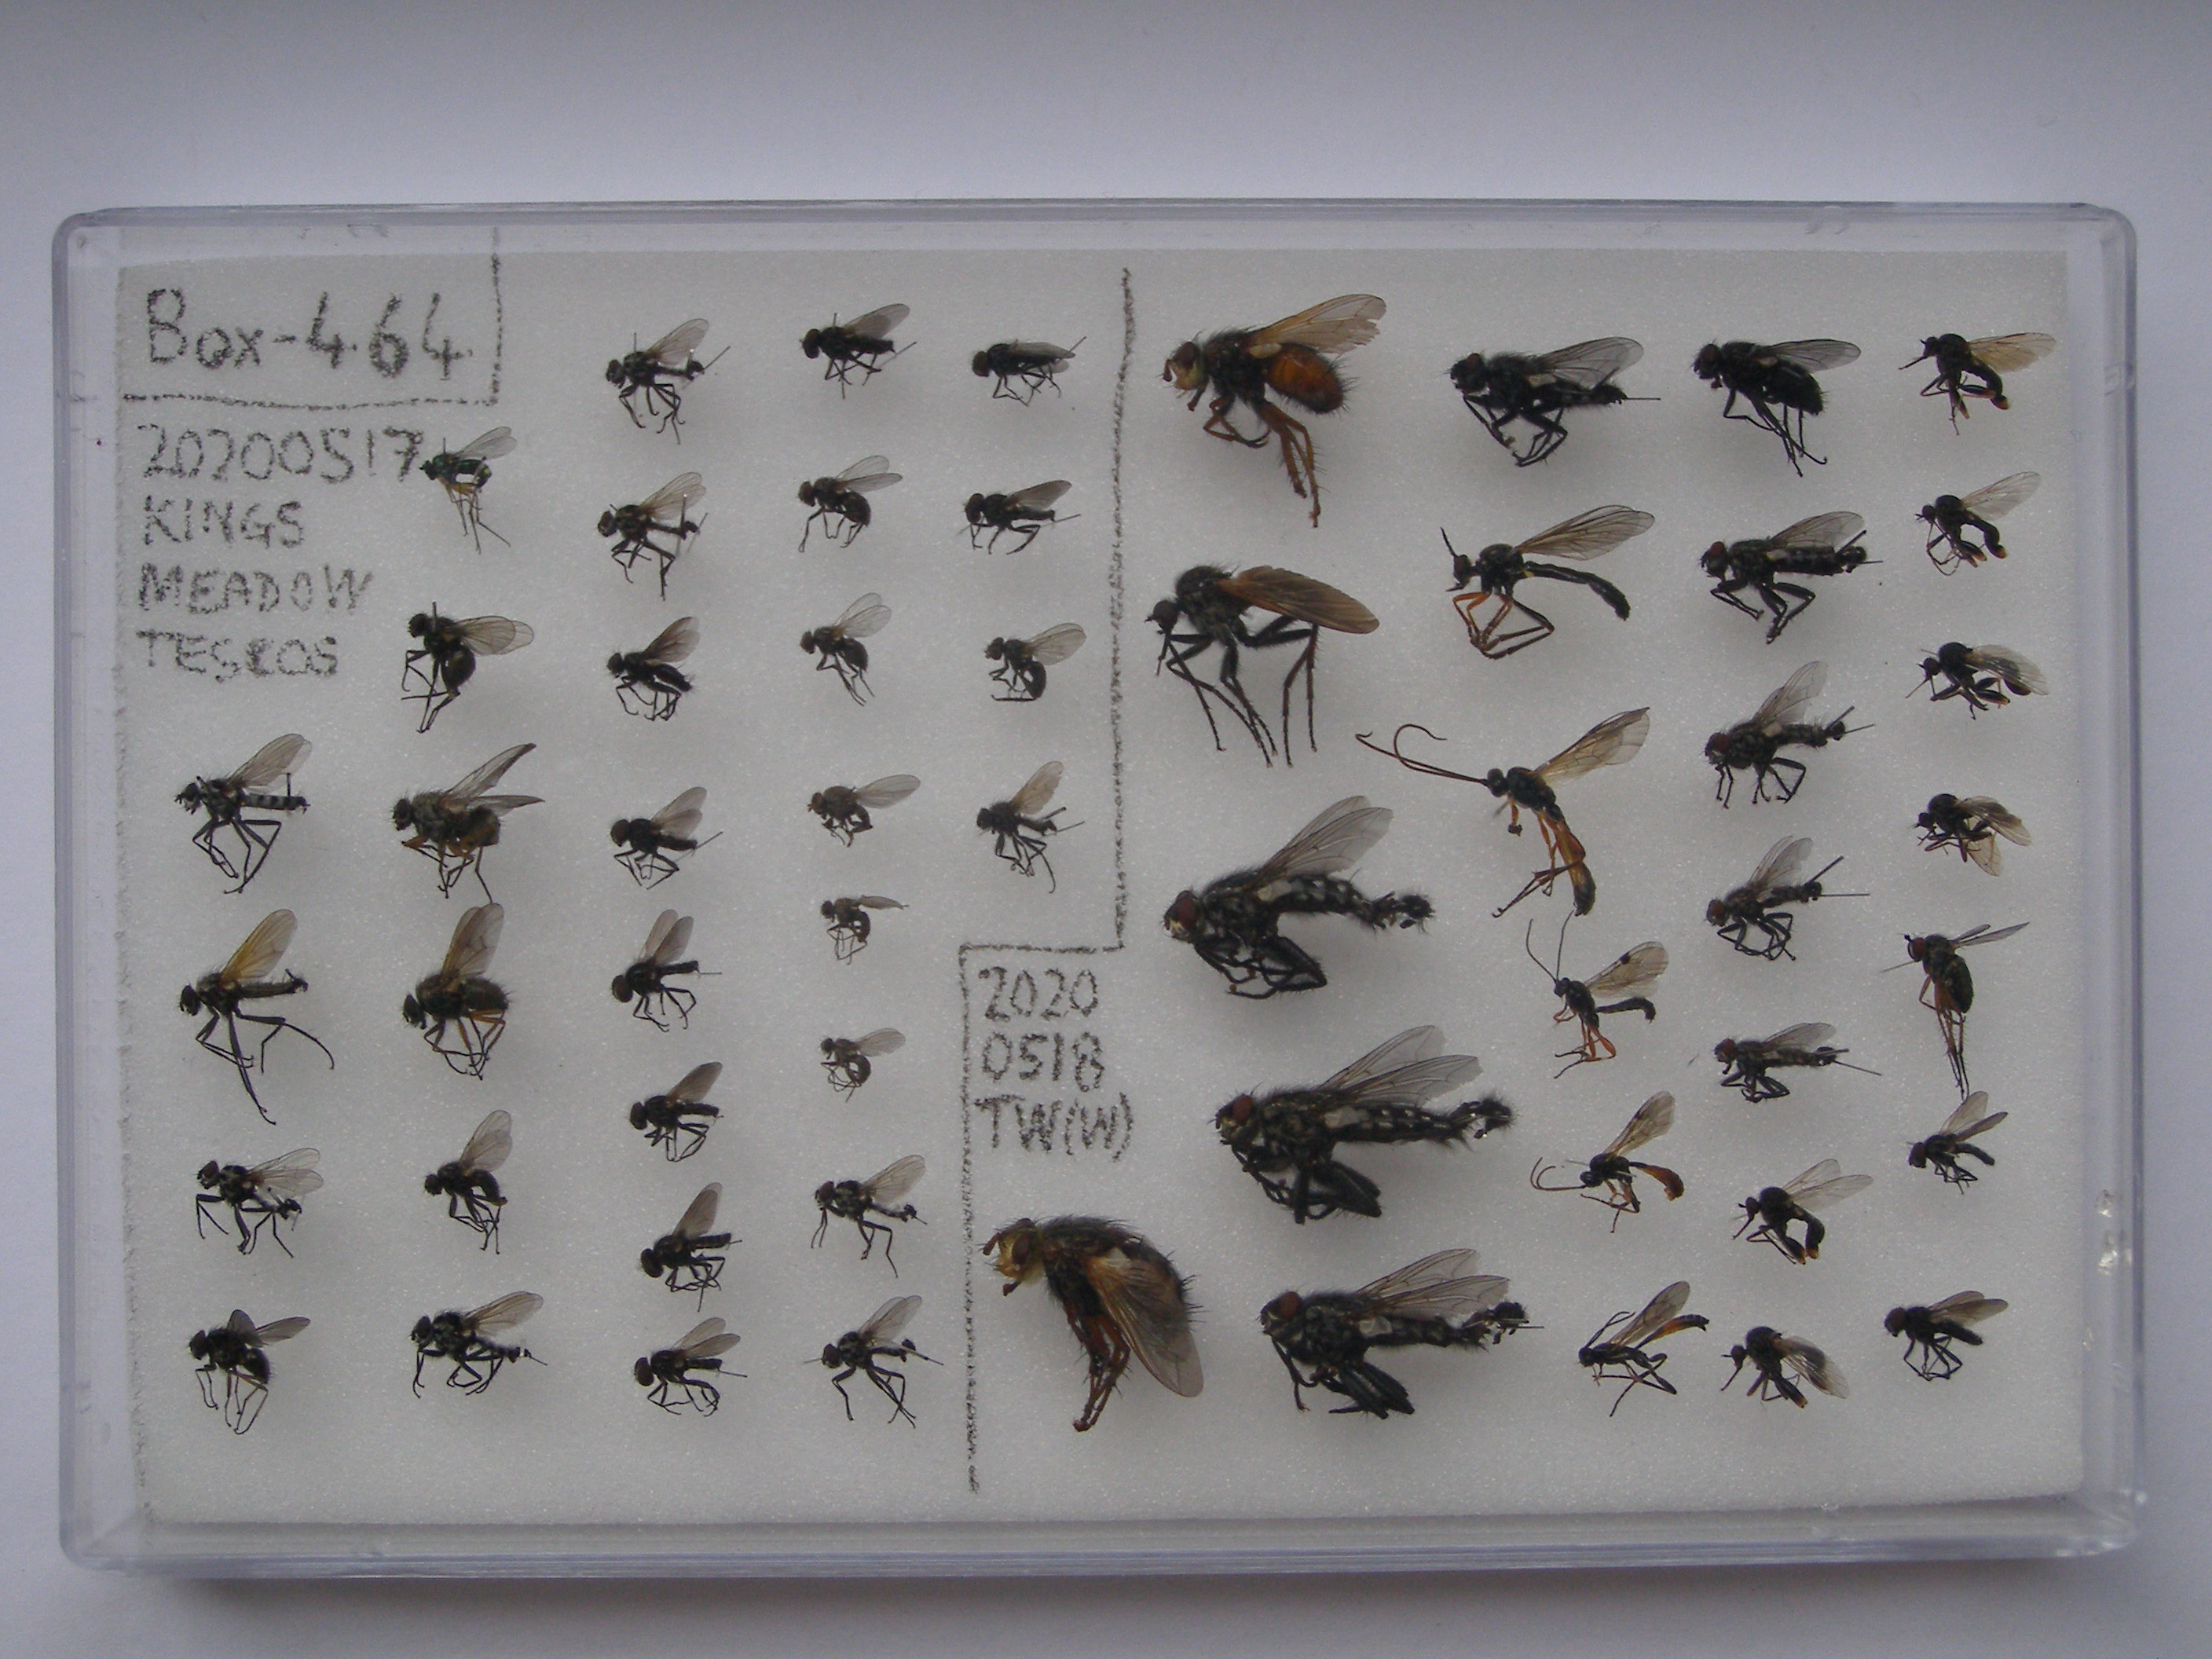 Box-464
20200517
KINGS
MEADOW
TESCOS
2020
0518
TW(W)